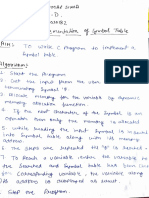 -D.
Implementation of Symbol Table
Aim: To write C Program to implement a
Symbol table.
Algorithm:
Start the Program.
Get the input from the user
terminated Symbol '$'.
Allocate memory for the variable by dynamic
memory allocation function.
If the next character of the Symbol is an
operator then only the memory is allocated
While reading the input Symbol is inserted
into Symbol table along with its memory address
The steps are repeated till '$' is reached.
To Reach a variable, enter the variable to
be Searched and Symbol table has been checked
for Corresponding variable, the variable along its
address is displayed as result.
Stop the Program.